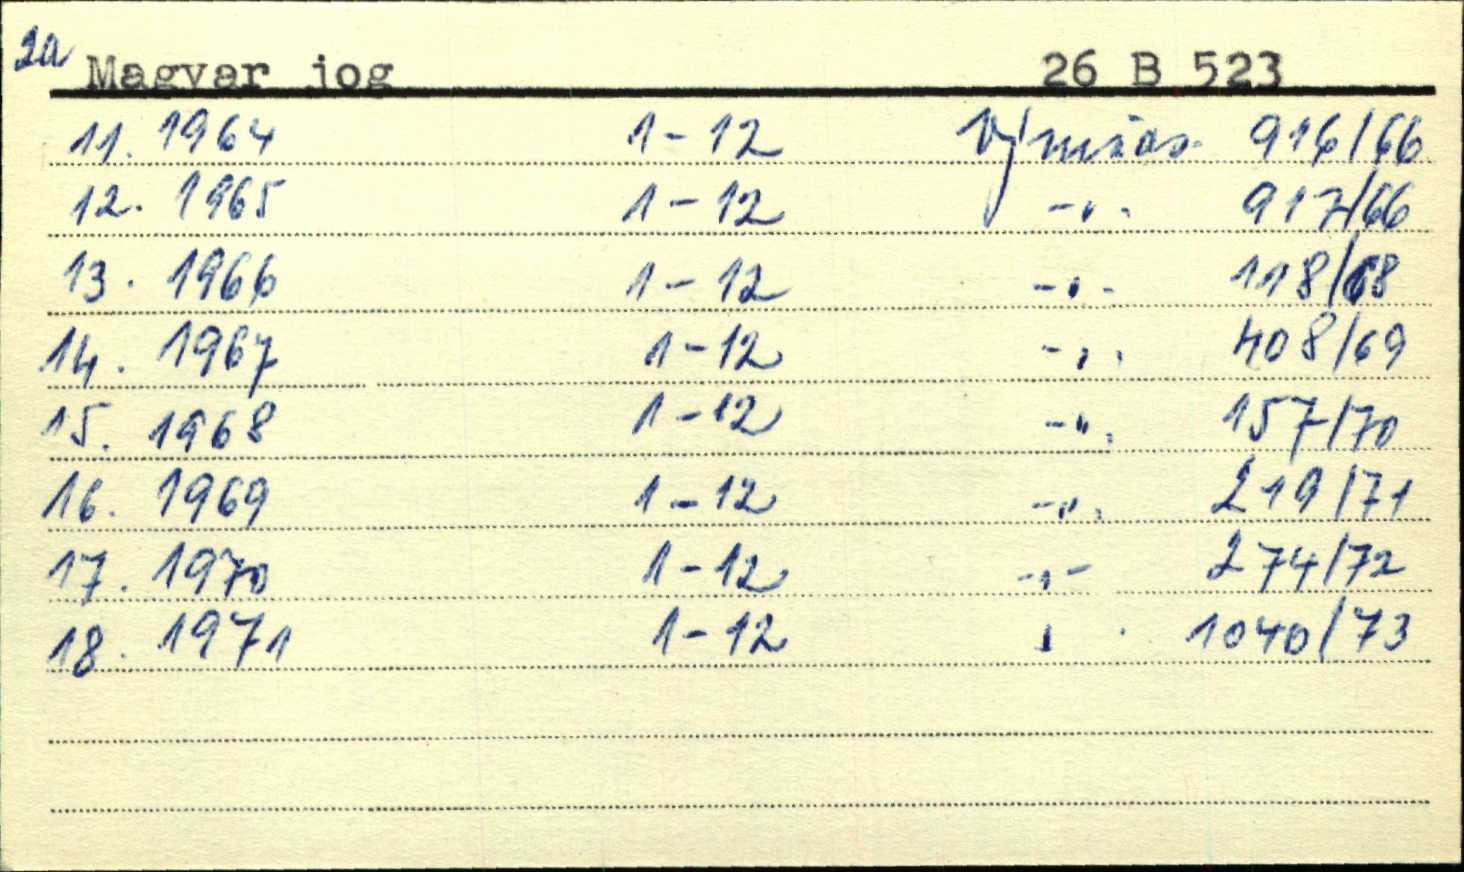 2a Magyar jog 26 B 523
11. 1964 1-12 Výmčas. 916/66
12. 1965 1-12 -"- 917/66
13. 1966 1-12 -"- 118/68
14. 1967 1-12 -"- 408/69
15. 1968 1-12 -"- 157/70
16. 1969 1-12 -"- 219/71
17. 1970 1-12 -"- 274/72
18. 1971 1-12 " 1040/73